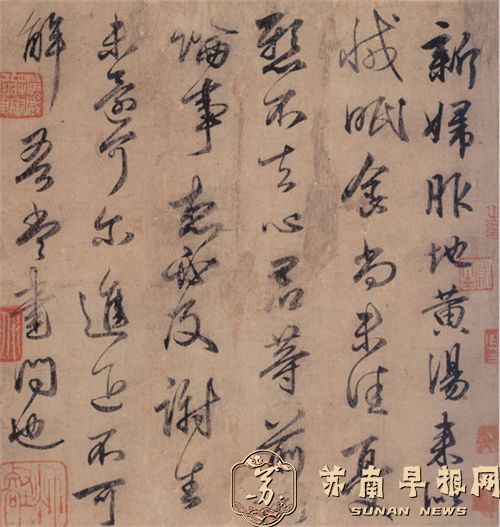 新婦服地黄湯来似
減眠食尚未佳憂
懸不去心君等前
論事想必及謝生
未還可尓進退不可
解吾當書問也
苏
苏南早报网
SUNAN NEWS